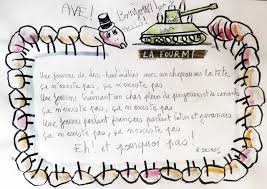 AVE!
Bonjour!
LA FOURMI
Une fourmi de dix-huit mètres avec un chapeau sur la tête
ça n'existe pas, ça n'existe pas
Une fourmi traînant un char plein de pingouins et de canards
ça n'existe pas, ça n'existe pas
Une fourmi parlant français parlant latin et javanais
ça n'existe pas, ça n'existe pas
Eh! et pourquoi pas!
R. DESNOS